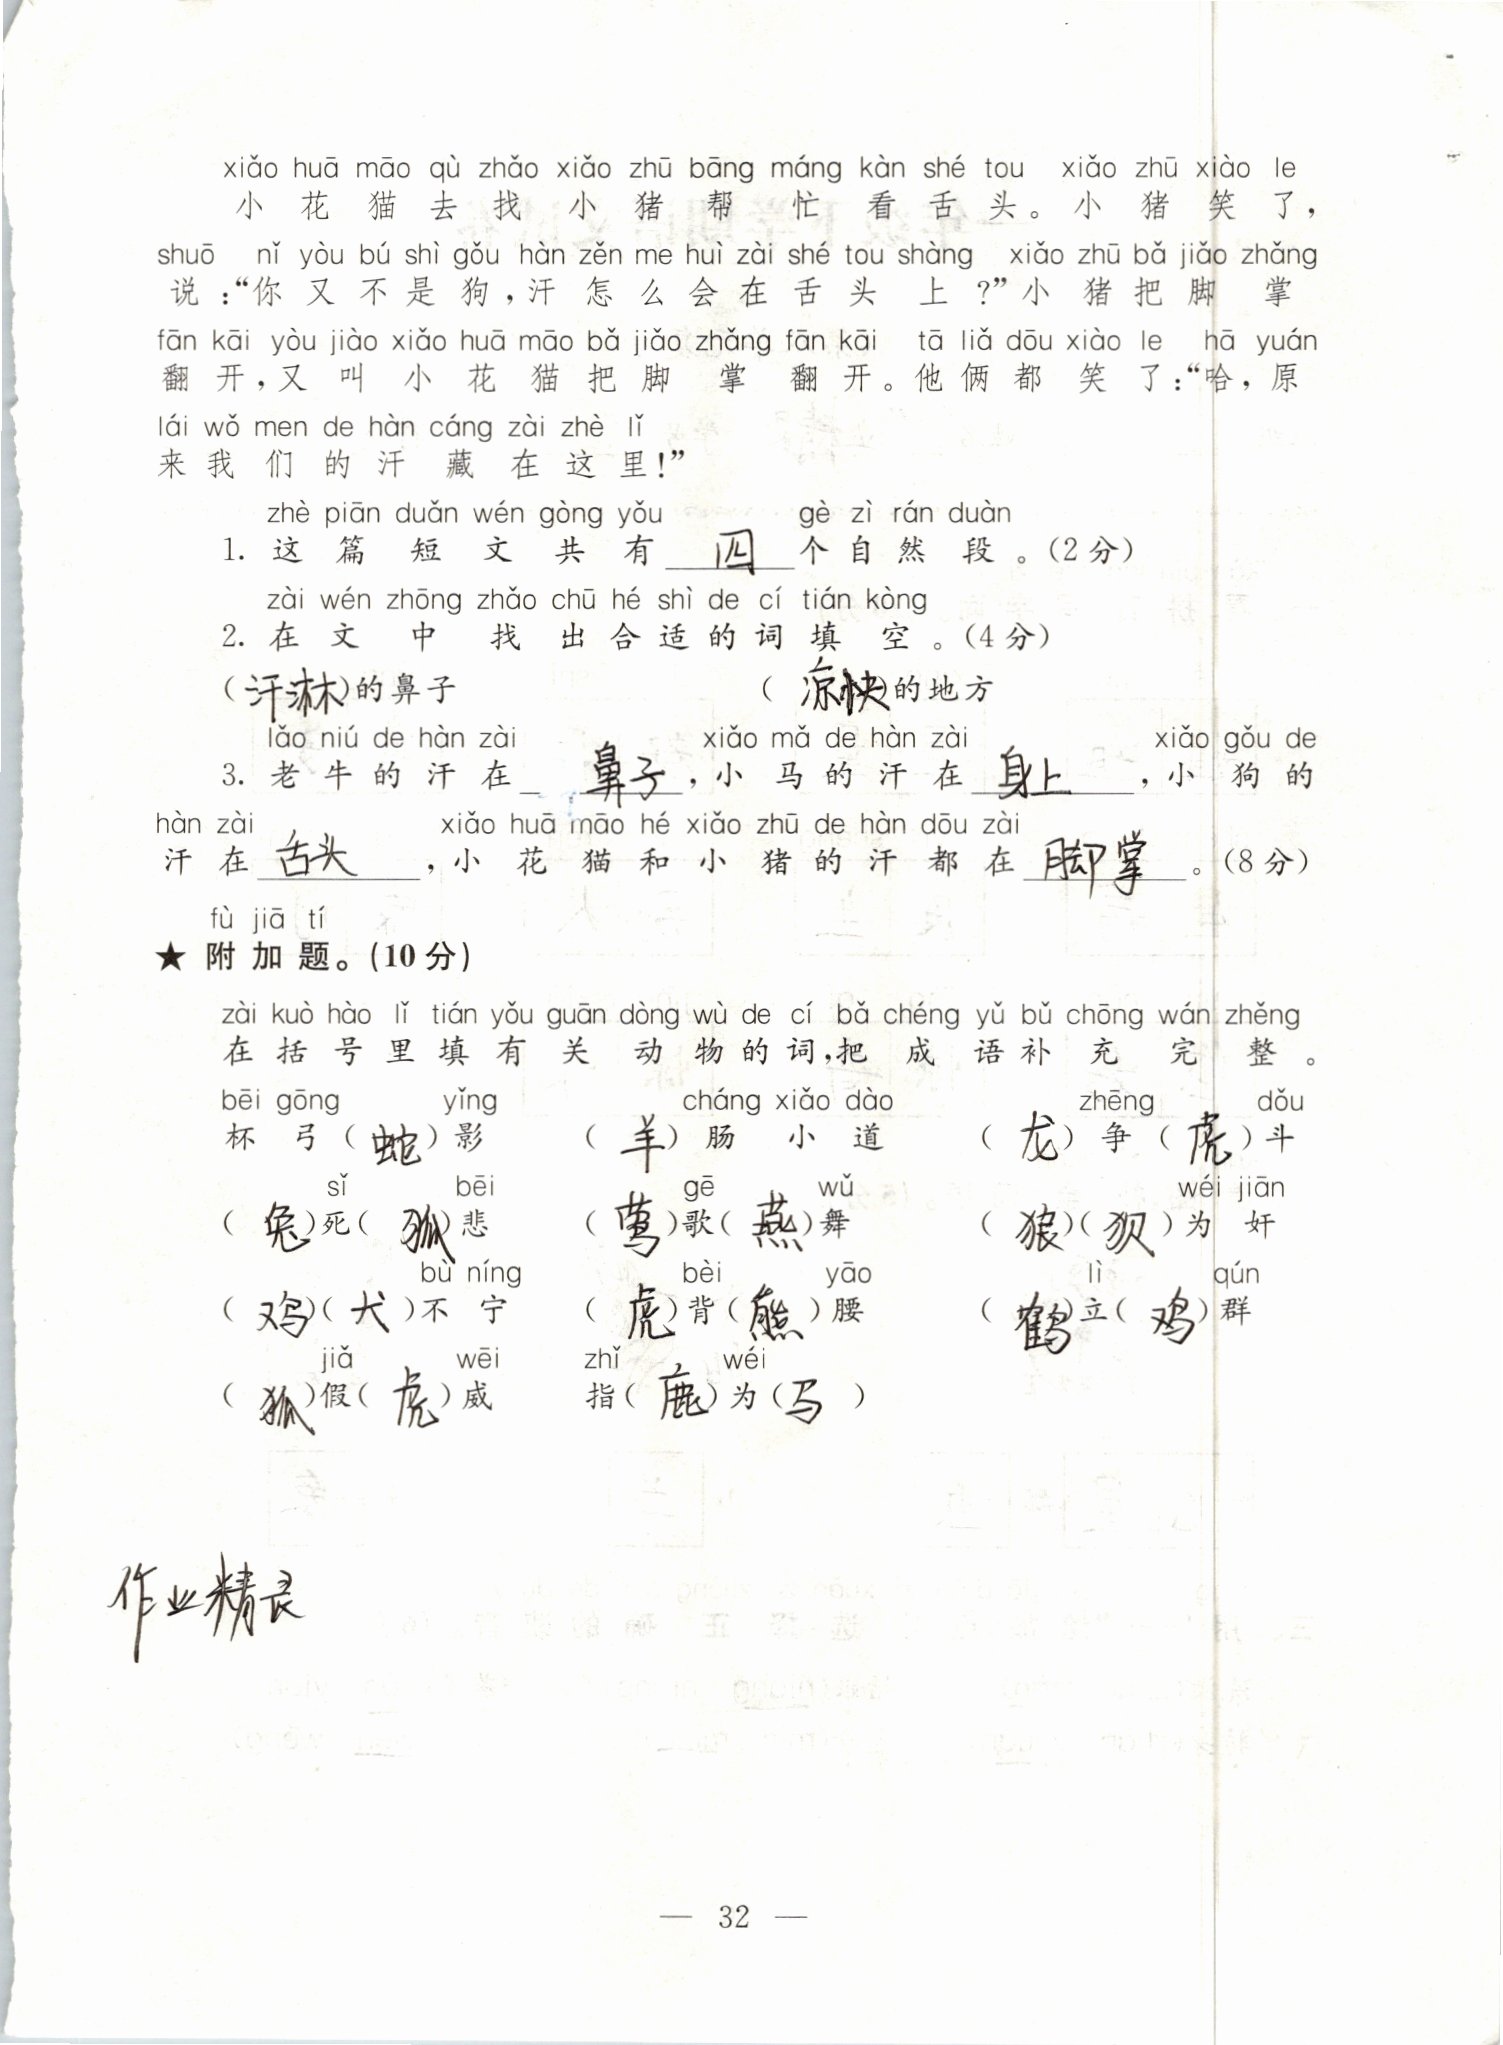 xiǎo huā māo qù zhǎo xiǎo zhū bāng máng kàn shé tou xiǎo zhū xiào le
小花猫去找小猪帮忙看舌头。小猪笑了，
shuō nǐ yòu bú shì gǒu hàn zěn me huì zài shé tou shàng xiǎo zhū bǎ jiǎo zhǎng
说：“你又不是狗，汗怎么会在舌头上？”小猪把脚掌
fān kāi yòu jiào xiǎo huā māo bǎ jiǎo zhǎng fān kāi tā liǎ dōu xiào le hā yuán
翻开，又叫小花猫把脚掌翻开。他俩都笑了：“哈，原
lái wǒ men de hàn cáng zài zhè lǐ
来我们的汗藏在这里！”
zhè piān duǎn wén gòng yǒu gè zì rán duàn
1. 这篇短文共有 四 个自然段。(2分)
zài wén zhōng zhǎo chū hé shì de cí tián kòng
2. 在文中找出合适的词填空。(4分)
(汗淋)的鼻子 (凉快)的地方
lǎo niú de hàn zài xiǎo mǎ de hàn zài xiǎo gǒu de
3. 老牛的汗在 鼻子，小马的汗在 身上，小狗的
hàn zài xiǎo huā māo hé xiǎo zhū de hàn dōu zài
汗在 舌头，小花猫和小猪的汗都在 脚掌。(8分)
fù jiā tí
★ 附加题。(10分)
zài kuò hào lǐ tián yǒu guān dòng wù de cí bǎ chéng yǔ bǔ chōng wán zhěng
在括号里填有关动物的词，把成语补充完整。
bēi gōng yǐng cháng xiǎo dào zhēng dǒu
杯弓(蛇)影 (羊)肠小道 (龙)争(虎)斗
sǐ bēi gē wǔ wéi jiān
(兔)死(狐)悲 (莺)歌(燕)舞 (狼)(狈)为奸
bù níng bèi yāo lì qún
(鸡)(犬)不宁 (虎)背(熊)腰 (鹤)立(鸡)群
jiǎ wēi zhǐ wéi
(狐)假(虎)威 指(鹿)为(马)
作业精良
— 32 —